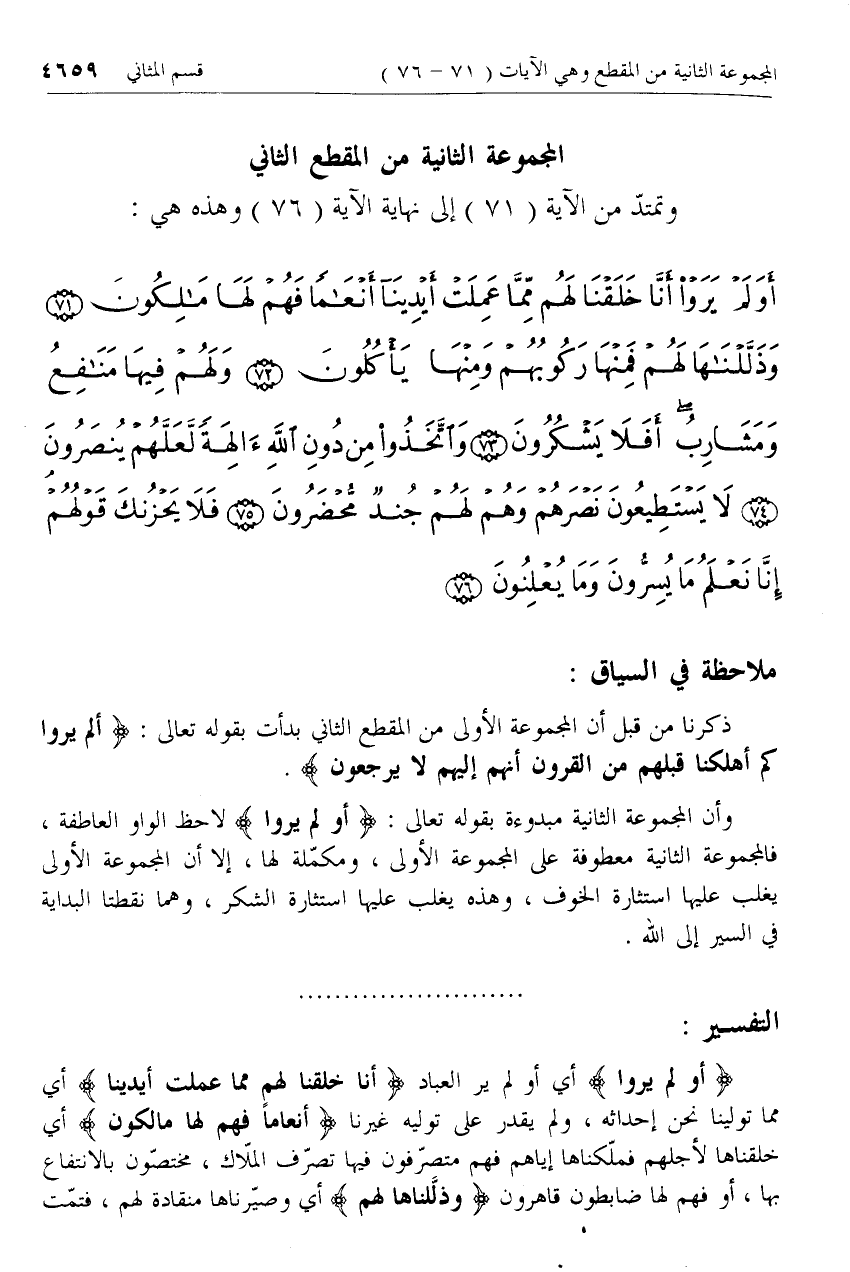 المجموعة الثانية من المقطع وهي الآيات ( ٧١ - ٧٦ ) قسم المثاني ٤٦٥٩
المجموعة الثانية من المقطع الثاني
وتمتدّ من الآية ( ٧١ ) إلى نهاية الآية ( ٧٦ ) وهذه هي :
أَوَلَمْ يَرَوْا۟ أَنَّا خَلَقْنَا لَهُم مِّمَّا عَمِلَتْ أَيْدِينَآ أَنْعَـٰمًا فَهُمْ لَهَا مَـٰلِكُونَ ٧١
وَذَلَّلْنَـٰهَا لَهُمْ فَمِنْهَا رَكُوبُهُمْ وَمِنْهَا يَأْكُلُونَ ٧٢ وَلَهُمْ فِيهَا مَنَـٰفِعُ
وَمَشَارِبُ ۖ أَفَلَا يَشْكُرُونَ ٧٣ وَٱتَّخَذُوا۟ مِن دُونِ ٱللَّهِ ءَالِهَةً لَّعَلَّهُمْ يُنصَرُونَ
٧٤ لَا يَسْتَطِيعُونَ نَصْرَهُمْ وَهُمْ لَهُمْ جُندٌ مُّحْضَرُونَ ٧٥ فَلَا يَحْزُنكَ قَوْلُهُمْ ۘ
إِنَّا نَعْلَمُ مَا يُسِرُّونَ وَمَا يُعْلِنُونَ ٧٦
ملاحظة في السياق :
ذكرنا من قبل أن المجموعة الأولى من المقطع الثاني بدأت بقوله تعالى : ﴿ ألم يروا
كم أهلكنا قبلهم من القرون أنهم إليهم لا يرجعون ﴾ .
وأن المجموعة الثانية مبدوءة بقوله تعالى : ﴿ أو لم يروا ﴾ لاحظ الواو العاطفة ،
فالمجموعة الثانية معطوفة على المجموعة الأولى ، ومكمّلة لها ، إلا أن المجموعة الأولى
يغلب عليها استثارة الخوف ، وهذه يغلب عليها استثارة الشكر ، وهما نقطتا البداية
في السير إلى الله .
.........................
التفسير :
﴿ أو لم يروا ﴾ أي أو لم ير العباد ﴿ أنا خلقنا لهم مما عملت أيدينا ﴾ أي
مما تولينا نحن إحداثه ، ولم يقدر على توليه غيرنا ﴿ أنعاماً فهم لها مالكون ﴾ أي
خلقناها لأجلهم فملّكناها إياهم فهم متصرّفون فيها تصرّف الملّاك ، مختصّون بالانتفاع
بها ، أو فهم لها ضابطون قاهرون ﴿ وذلَّلناها لهم ﴾ أي وصيّرناها منقادة لهم ، فتمّت